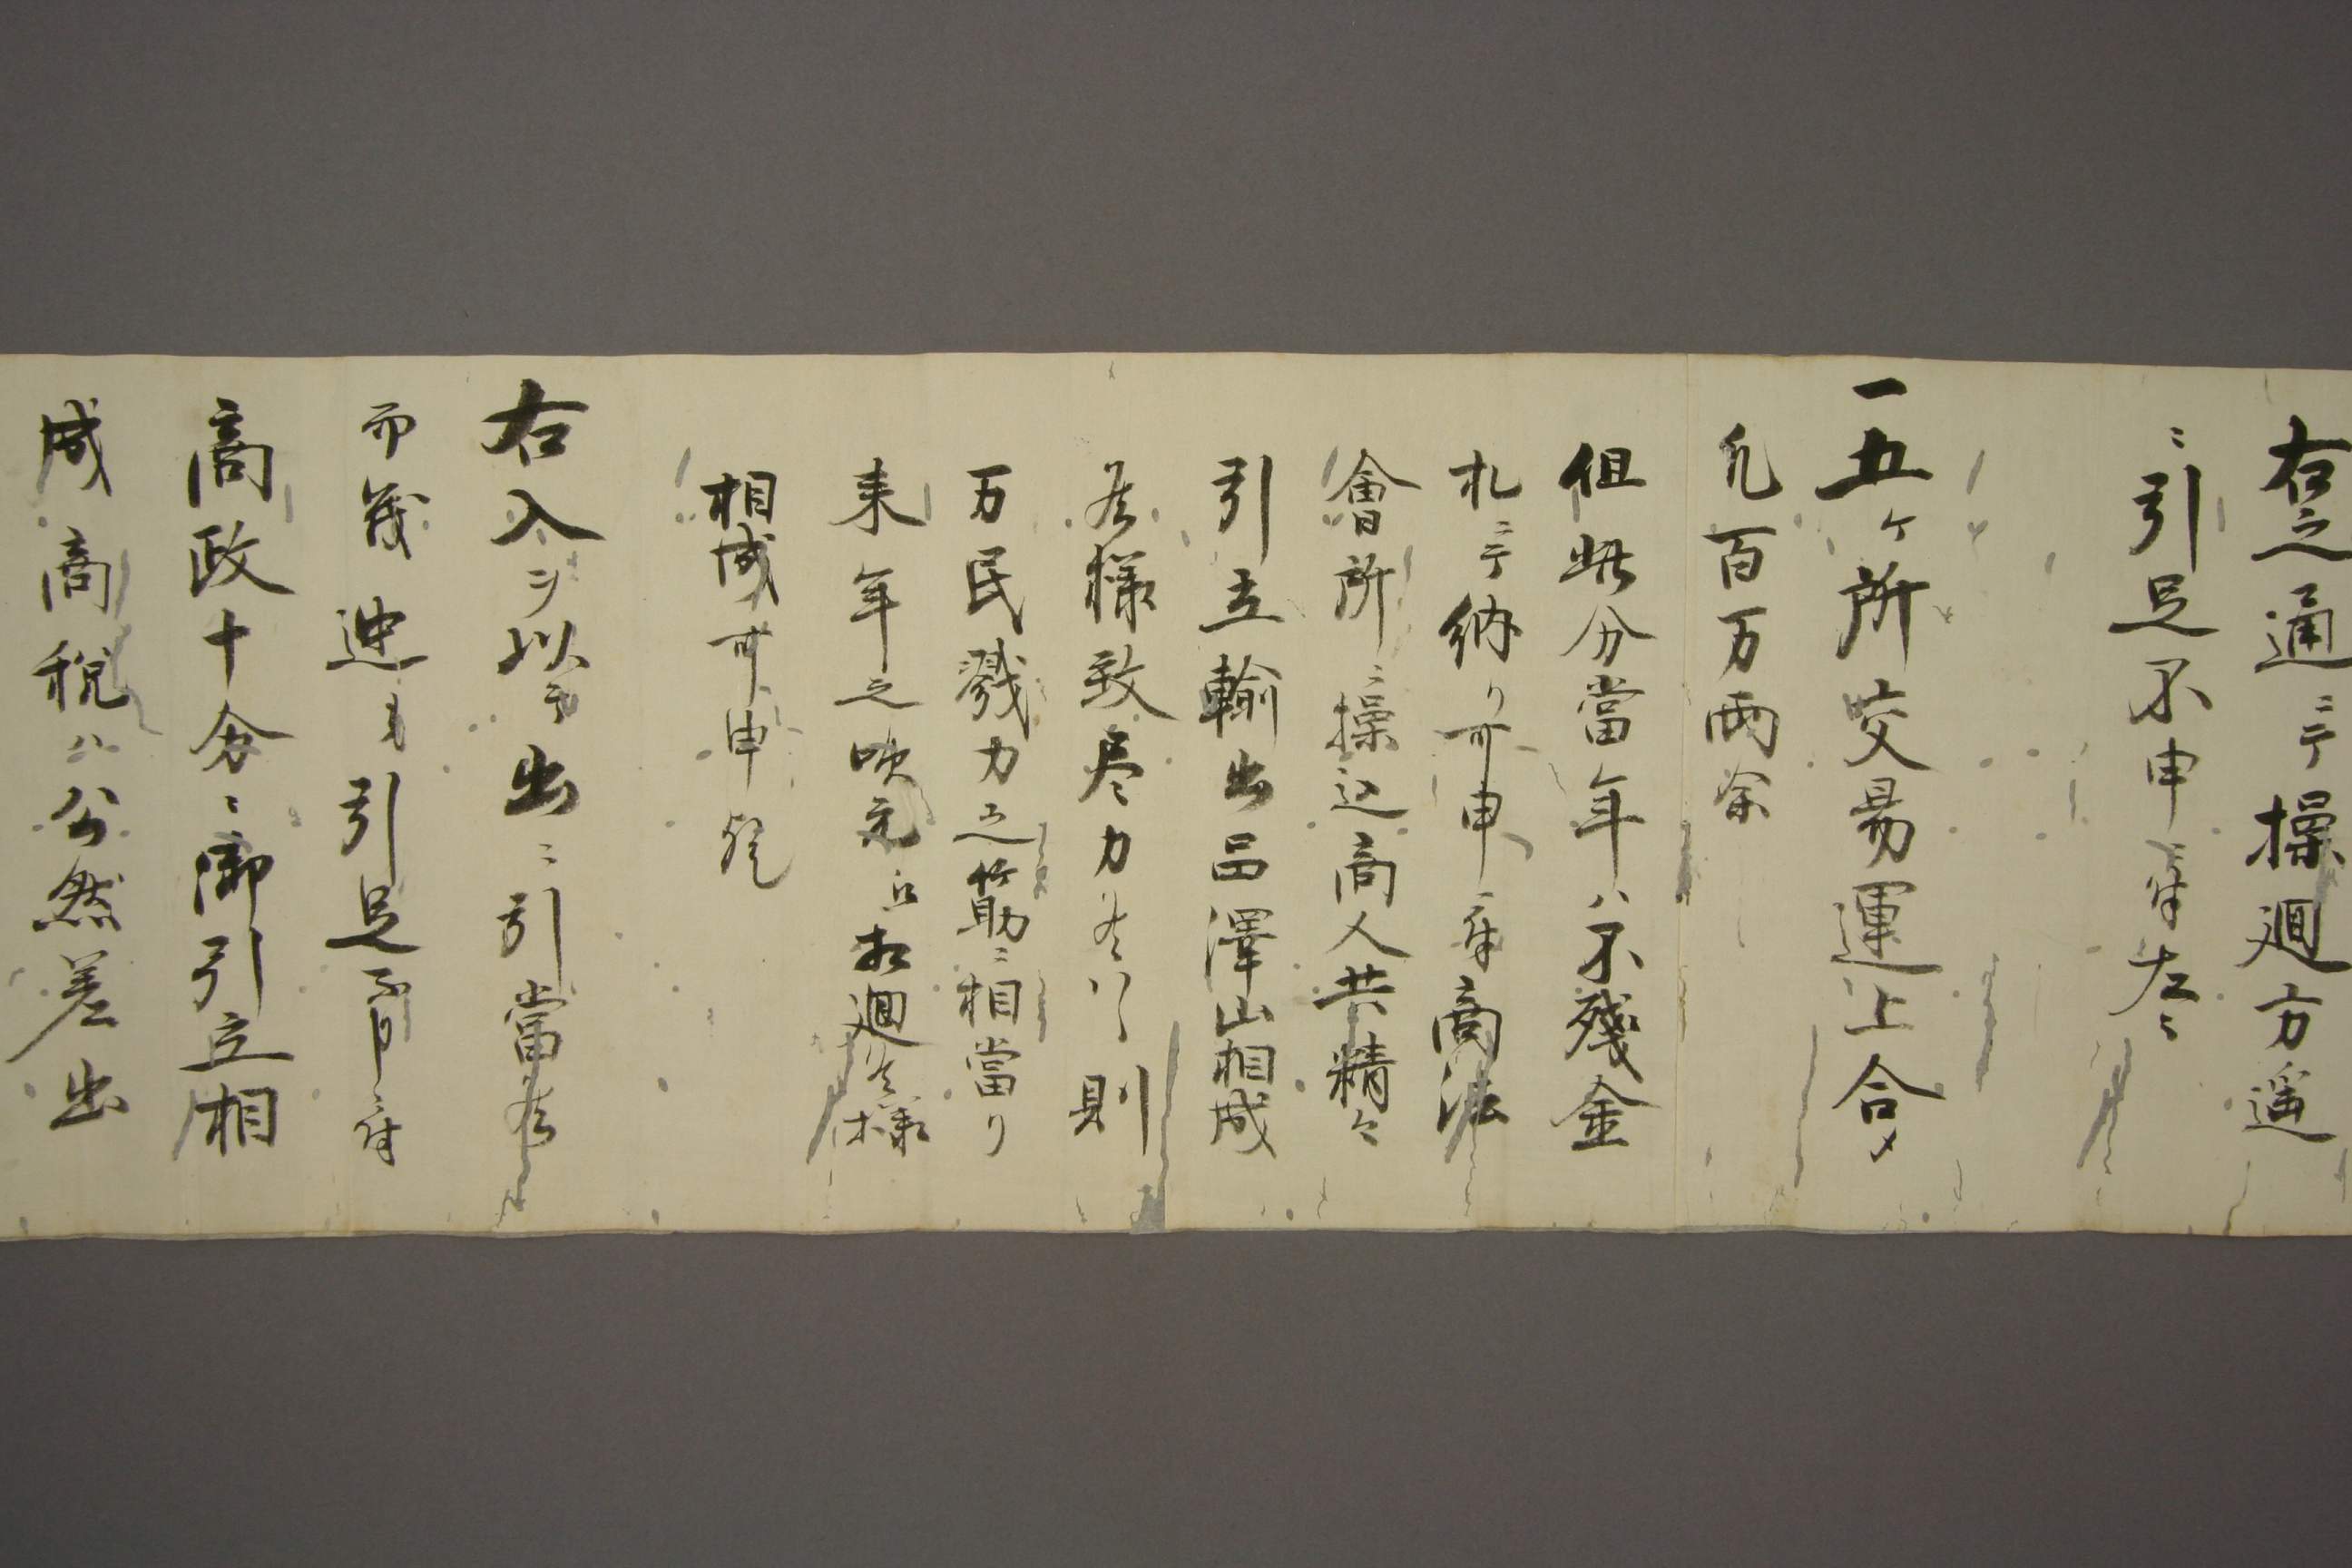 右之通ニテ操廻方遥
ニ引足不申ニ付左ニ
一五ケ所交易運上合〆
凡百万両余
但此分當年ハ不残金
札ニテ納り可申ニ付商法
會所ニ操込商人共精々
引立輸出品澤山相成
候様致尽力候ハヽ則
万民戮力之筋ニ相當り
来年之吹元ニ相廻候様
相成可申候
右入ヲ以テ出ニ引當候
而茂迚も引足不申ニ付
商政十分ニ御引立相
成商税ハ公然差出